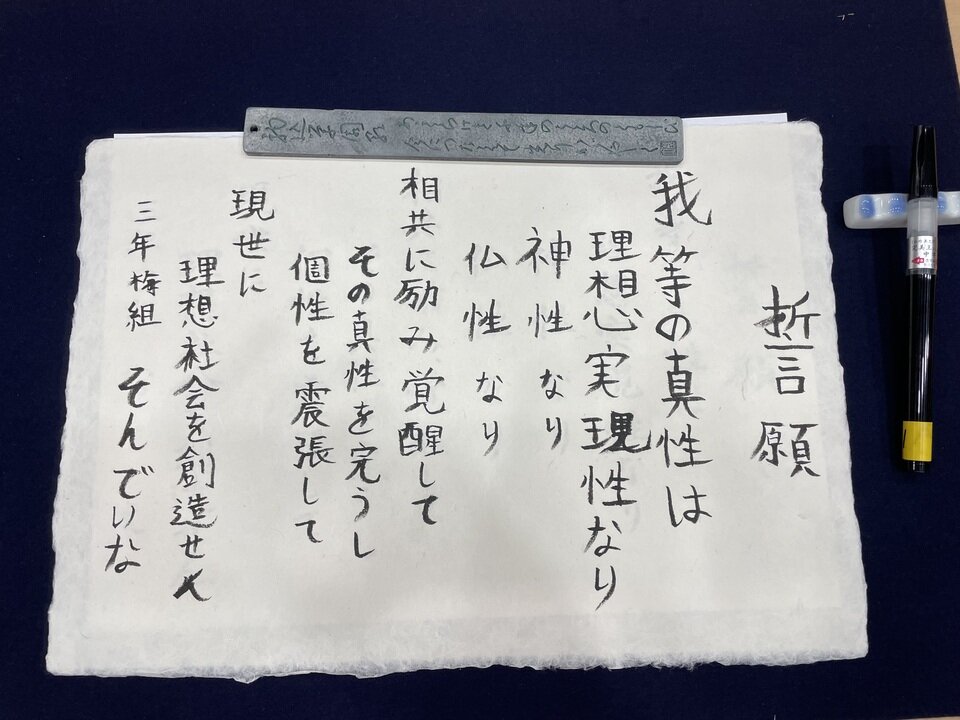 誓願
我等の真性は
理想心実現性なり
神性なり
仏性なり
相共に励み覚醒して
その真性を完うし
個性を震張して
現世に
理想社会を創造せん
三年梅組 そんでいな